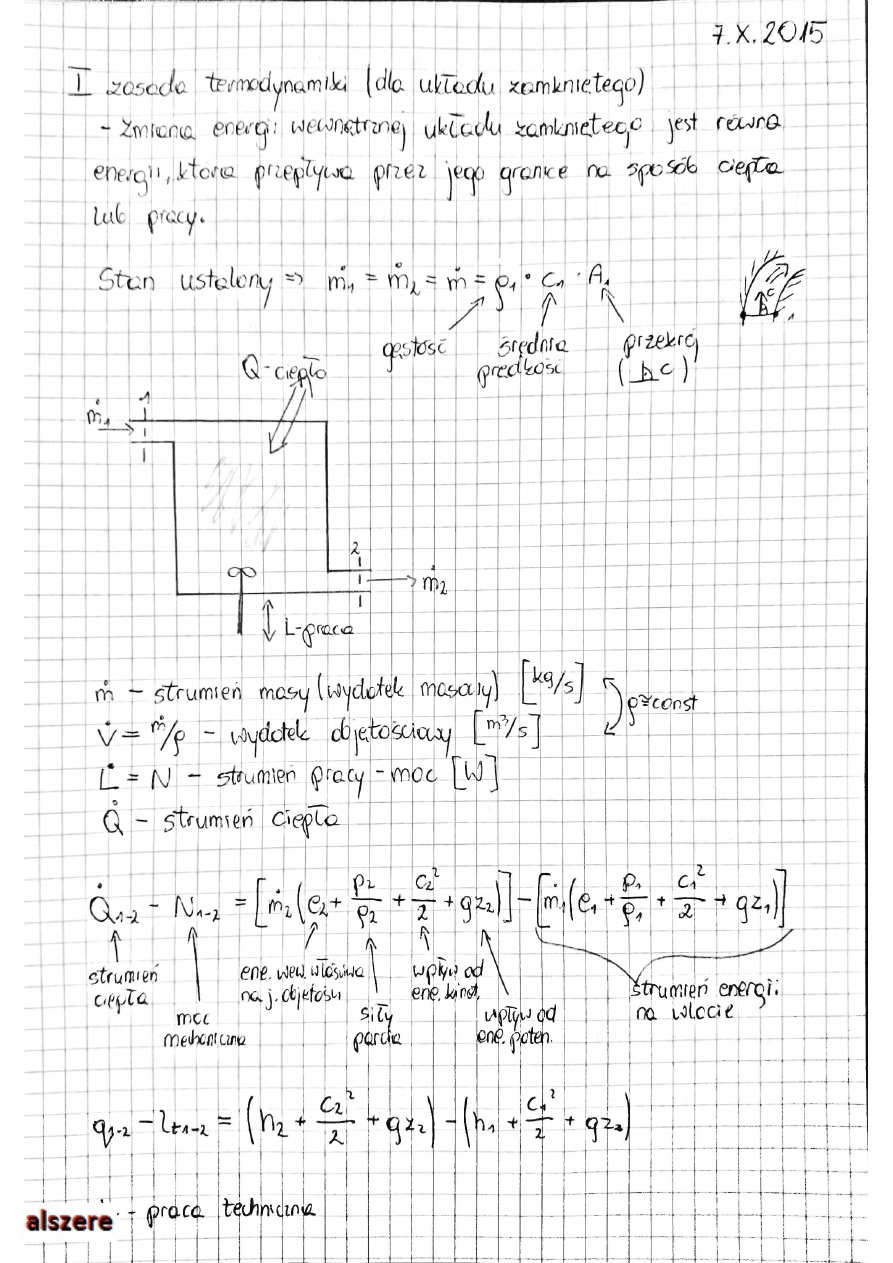 7.X.2015
I zasada termodynamiki (dla układu zamkniętego)
- zmiana energii wewnętrznej układu zamkniętego jest równa
energii, która przepływa przez jego granice na sposób ciepła
lub pracy.
Stan ustalony => ṁ₁ = ṁ₂ = ṁ = ρ₁ · C₁ · A₁
gęstość średnia prędkość przekrój (⊥ C)
Q-ciepło
1
ṁ₁
2
ṁ₂
L-praca
ṁ - strumień masy (wydatek masowy) [kg/s]
ρ≅const
V̇ = ṁ/ρ - wydatek objętościowy [m³/s]
L̇ = N - strumień pracy - moc [W]
Q̇ - strumień ciepła
Q̇₁₋₂ - N₁₋₂ = [ṁ₂(e₂ + p₂/ρ₂ + c₂²/2 + gz₂)] - [ṁ₁(e₁ + p₁/ρ₁ + c₁²/2 + gz₁)]
strumień ciepła
moc mechaniczna
ene. wew. właściwa na j. objętości
siły parcia
wpływ od ene. kinet.
wpływ od ene. poten.
strumień energii na wlocie
q₁₋₂ - lt₁₋₂ = (h₂ + c₂²/2 + gz₂) - (h₁ + c₁²/2 + gz₁)
- praca techniczna
alszere